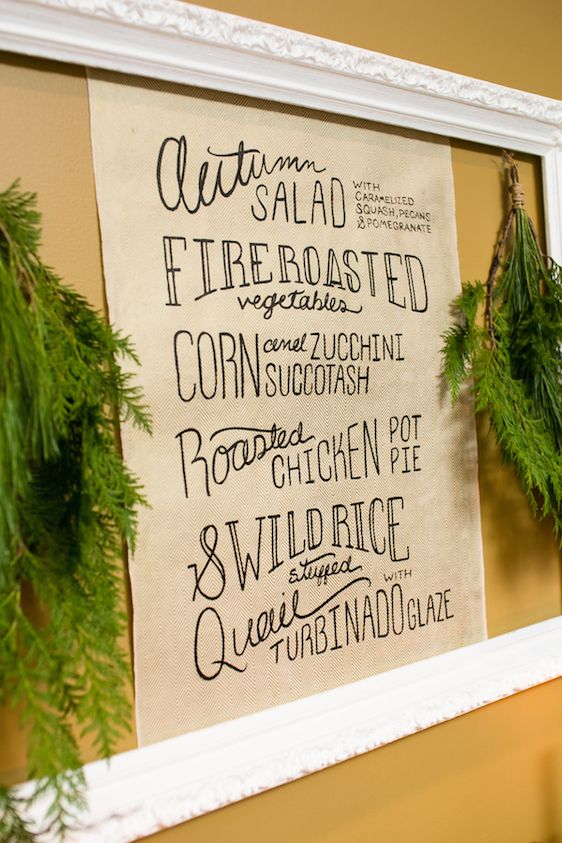 Autumn
SALAD WITH
CARAMELIZED
SQUASH, PECANS
& POMEGRANATE
FIRE ROASTED
vegetables
CORN and ZUCCHINI
SUCCOTASH
Roasted
CHICKEN POT
PIE
& WILD RICE
stuffed
Quail WITH
TURBINADO GLAZE